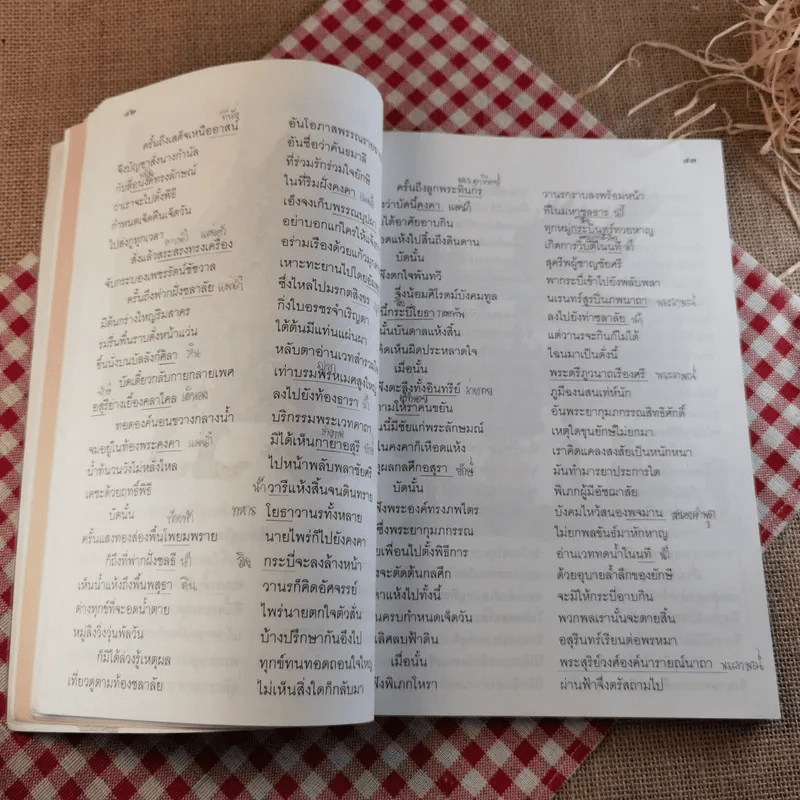 ๔๒
ครั้นถึงเสด็จเหนืออาสน์ อันโอภาสพรรณราย
จึงบัญชาสั่งนางกำนัล อันชื่อว่าคันธมาลี
กับอีอนงค์ทรงลักษณ์ ที่ร่วมรักร่วมใจยักษี
ว่าเราจะไปตั้งพิธี ในที่ริมฝั่งคงคา แม่น้ำ
กำหนดเจ็ดคืนเจ็ดวัน เอ็งจงเก็บพรรณบุปผา
ไปส่งกูทุกเวลา อย่าบอกแก่ใครให้แจ้ง
สั่งแล้วสระสรงทรงเครื่อง อร่ามเรืองด้วยแก้ว
จับกระบองเพชรรัตน์ชัชวาล เหาะทะยานไปโดย
ครั้นถึงฟากฝั่งชลาลัย แม่น้ำ ซึ่งไหลไปมรกตสิงขร
มีต้นกร่างใหญ่ริมสาคร กิ่งใบอรชรจำเริญตา
รมรื่นพื้นราบดั่งหน้าแว่น ใต้ต้นมีแท่นแผ่นผา
ขึ้นนั่งบนบัลลังก์ศิลา หิน หลับตาอ่านเวทสำรวม
บัดเดี๋ยวกลับกายกลายเพศ เท่าบรมพรหเมศสูงใหญ่
อสุรีย่างเยื้องคลาไคล ลงไปยังท้องธารา น้ำ
ทอดองค์นอนขวางกลางน้ำ บริกรรมพระเวทคาถา
จมอยู่ในท้องพระคงคา แม่น้ำ มิได้เห็นกายาอสุรี
น้ำท้นนวังไม่หลั่งไหล ไปหน้าพลับพลาชัยศรี
เดชะด้วยฤทธิ์พิธี น้ำ วารีแห้งสิ้นจนดินทราย
บัดนั้น ทหาร โยธาวานรทั้งหลาย
ครั้นแสงทองส่องพื้นโพยมพราย นายไพร่ก็ไปยังคงคา
ก็ถึงที่ฟากฝั่งชลธี น้ำ ลิง กระบี่จะลงล้างหน้า
เห็นน้ำแห้งถึงพื้นพสุธา ดิน วานรก็คิดอัศจรรย์
ต่างทุกข์ที่จะอดน้ำตาย ไพร่นายตกใจตัวสั่น
หมู่ลิงวิ่งวุ่นพัลวัน บ้างปรึกษากันอึงไป
ก็มิได้ล่วงรู้เหตุผล ทุกข์ทนทอดถอนใจใหญ่
เที่ยวดูตามท้องชลาลัย ไม่เห็นสิ่งใดก็กลับมา
๔๓
ครั้นถึงลูกพระทินกร วานรกราบลงพร้อมหน้า
ว่าบัดนี้คงคา แม่น้ำ ที่ในมหาชลธาร น้ำ
ได้อาศัยอาบกิน ทุกหมู่กระบินทร์ทวยหาญ
ดแห้งไปสิ้นถึงดินดาน เกิดการวิบัติในนที น้ำ
บัดนั้น สุครีพผู้ชาญชัยศรี
ฟังตกใจพันทวี พากระบี่เข้าไปยังพลับพลา
จึ่งน้อมศิโรตม์บังคมทูล นเรนทร์สูรปิ่นภพนาถา พระรามณ์
นี้กระบี่โยธา ลงไปยังท่าชลาลัย น้ำ
นั้นบันดาลแห้งสิ้น แต่วานรจะกินก็ไม่ได้
คิดเห็นผิดประหลาดใจ ไฉนมาเป็นดั่งนี้
เมื่อนั้น พระตรีภูวนาถเรืองศรี
ฟังตะลึงทั้งอินทรีย์ ร่างกาย ภูมีฉงนสนเท่ห์นัก
ทามให้ราคนขยัน อันพระยากุมภกรรณสิทธิศักดิ์
นนี้มีชัยแก่พระลักษมณ์ เหตุใดขุนยักษ์ไม่ยกมา
ในคงคาก็เหือดแห้ง เราคิดแคลงสงสัยเป็นหนักหนา
ผลกลศึกอสุรา ยักษ์ มันทำมารยาประการใด
บัดนั้น พิเภกผู้มีอัชฌาสัย
ฟังพระองค์ทรงภพไตร บังคมไหว้สนองพจมาน
ซึ่งพระยากุมภกรรณ ไม่ยกพลขันธ์มาหักหาญ
เพื่อนไปตั้งพิธีการ อ่านเวททดน้ำในนที น้ำ
จะตัดต้นกลศึก ด้วยอุบายล้ำลึกของยักษี
าแห้งไปทั้งนี้ จะมิให้กระบี่อาบกิน
นครบกำหนดเจ็ดวัน พวกพลเรานั้นจะตายสิ้น
เลิศลบฟ้าดิน อสุรินทร์เรียนต่อพรหมา
เมื่อนั้น พระสุริย์วงศ์องค์นารายณ์นาถา
ฟังพิเภกโหรา ผ่านฟ้าจึ่งตรัสถามไป